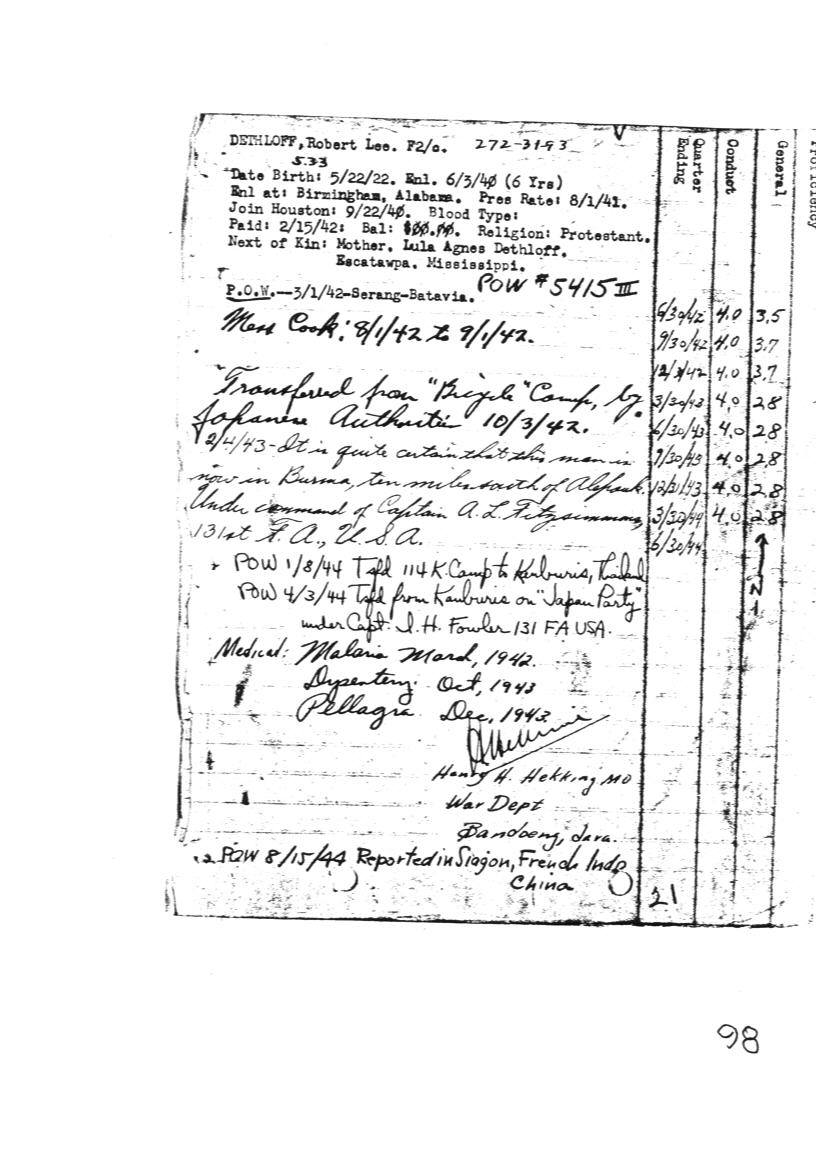 DETHLOFF, Robert Lee. F2/c. 272-31-93
5.33
Date Birth: 5/22/22. Enl. 6/3/40 (6 Yrs)
Enl at: Birmingham, Alabama. Pres Rate: 8/1/41.
Join Houston: 9/22/40. Blood Type:
Paid: 2/15/42: Bal: $00.00. Religion: Protestant.
Next of Kin: Mother. Lula Agnes Dethloff.
Escatawpa. Mississippi.
POW #5415 III
P.O.W.--3/1/42-Serang-Batavia.
Mess Cook: 8/1/42 to 9/1/42.
Transferred from "Bicycle" Camp, by
Japanese Authorities 10/3/42.
2/4/43-It is quite certain that this man is
now in Burma, ten miles south of Alepauk.
Under command of Captain A. L. Fitzsimmons,
131st F. A., U.S.A.
POW 1/8/44 Tsfd 114 K. Camp to Kanburis, Thailand
POW 4/3/44 Tsfd from Kanburis on "Japan Party"
under Capt. I. H. Fowler 131 FA USA.
Medical: Malaria March, 1942.
Dysentery. Oct, 1943
Pellagra Dec, 1943
Henry H. Hekking MD
War Dept
Bandoeng, Java.
POW 8/15/44 Reported in Siagon, French Indo
China
Quarter Ending Conduct General
Proficiency
6/30/42 4.0 3.5
9/30/42 4.0 3.7
12/31/42 4.0 3.7
3/30/43 4.0 2.8
6/30/43 4.0 2.8
9/30/43 4.0 2.8
12/31/43 4.0 2.8
3/30/44 4.0 2.8
6/30/44
N
21
98